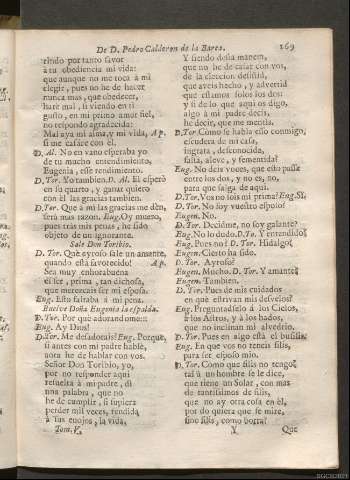 De D. Pedro Calderon de la Barca. 169
rindo por tanto favor
à tu obediencia mi vida:
que aunque no me toca à mi
elegir, pues no he de hacer
nunca mas, que obedecer,
haré mal, si viendo en ti
gusto, en mi primo amor fiel,
no respondo agradecida:
Mal aya mi alma, y mi vida, Ap.
si me casáre con èl.
D. Al. No en vano esperaba yo
de tu mucho entendimiento,
Eugenia, esse rendimiento.
D. Tor. Yo tambien. D. Al. El esperò
en su quarto, y ganar quiero
con èl las gracias tambien.
D. Tor. Que à mi las gracias me dèn,
serà mas razon. Eug. Oy muero,
pues tràs mis penas, he sido
objeto de un ignorante.
Sale Don Toribio.
D. Tor. Què ayroso sale un amante,
quando està favorecido! Ap.
Sea muy enhorabuena
el ser, prima, tan dichosa,
que merecais ser mi esposa.
Eng. Esto faltaba à mi pena.
Buelve Doña Eugenia la espalda.
D. Tor. Por què adorandome::
Eng. Ay Dios!
D. Tor. Me desadorais? Eug. Porque,
si antes con mi padre hablè,
aora he de hablar con vos.
Señor Don Toribio, yo,
por no responder aqui
resuelta à mi padre, di
una palabra, que no
he de cumplir, si supiera
perder mil veces, rendida
à sus enojos, la vida,
Tom. V.
Y siendo desta manera,
que no he de casar con vos,
de la eleccion desistid,
que aveis hecho, y advertid
que estamos solos los dos:
y si de lo que aqui os digo,
algo à mi padre decis,
he decir, que me mentis.
D. Tor. Como se habla esso conmigo,
escudera de mi casa,
ingrata, desconocida,
falsa, aleve, y fementida?
Eng. No deis voces, que esto passe
entre los dos, y no es, no,
para que salga de aqui.
D. Tor. Vos no sois mi prima? Eng. Sì.
D. Tor. No soy vuestro esposo?
Eugen. No.
D. Tor. Decidme, no soy galante?
Eng. No lo dudo. D. To. Y entendido?
Eng. Pues no? D. Tor. Hidalgo?
Eugen. Cierto ha sido.
D. Tor. Ayroso?
Eugen. Mucho. D. Tor. Y amante?
Eugen. Tambien.
D. Tor. Pues de mis cuidados
en què estrivan mis desvelos?
Eng. Preguntadselo à los Cielos,
à los Astros, y à los hados,
que no inclinan mi alvedrio.
D. Tor. Pues en algo està el busilis.
Eng. En que vos no teneis filis,
para ser esposo mio.
D. Tor. Como que filis no tengo?
tal à un hombre se le dice,
que tiene un Solar, con mas
de tantissimos de filis,
que no ay otra cosa en èl,
por do quiera que se mire,
sino filis, como borra?
Y Que